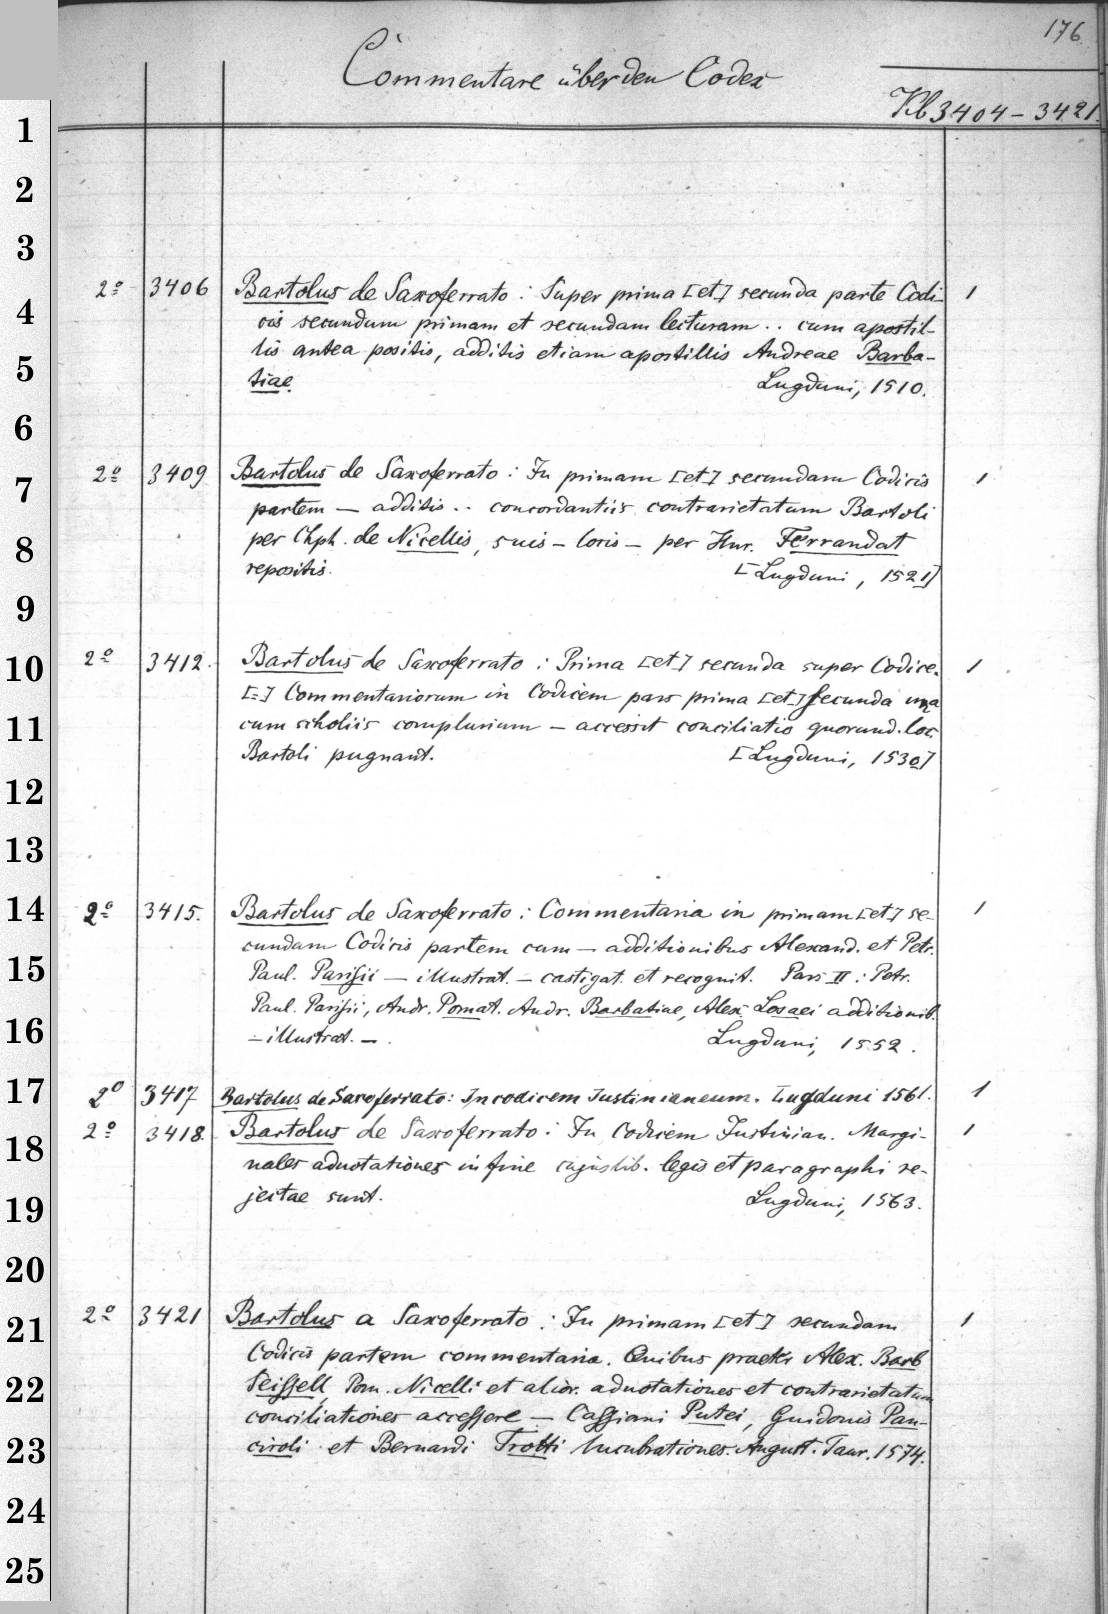 176
Commentare über den Codex
Kb 3404 - 3421.
1
2
3
2º 3406 Bartolus de Saxoferrato : Super prima [et] secunda parte Codi- 1
4
cis secundum primam et secundam lecturam .. cum apostil-
lis antea positis, additis etiam apostillis Andreae Barba-
5
tiae. Lugduni, 1510.
6
2º 3409 Bartolus de Saxoferrato : In primam [et] secundam Codicis 1
7
partem — additis .. concordantiis contrarietatum Bartoli
8
per Chph. de Nicellis, suis - locis - per Hnr. Ferrandat
repositis. [Lugduni, 1521]
9
10
2º 3412. Bartolus de Saxoferrato : Prima [et] secunda super Codice. 1
[=] Commentariorum in Codicem pars prima [et] secunda una
11
cum scholiis complurium — accessit conciliatio quorund. loc.
Bartoli pugnant. [Lugduni, 1530]
12
13
14
2º 3415. Bartolus de Saxoferrato : Commentaria in primam [et] se- 1
cundam Codicis partem cum — additionibus Alexand. et Petr.
15
Paul. Parisii — illustrat. — castigat. et recognit. Pars II : Petr.
Paul. Parisii, Andr. Pomat. Andr. Barbatiae, Alex. Losaei additionib.
16
— illustrat. — . Lugduni, 1552.
17
2º 3417 Bartolus de Saxoferrato: In codicem Iustinianeum. Lugduni 1561. 1
2º 3418. Bartolus de Saxoferrato : In Codicem Justinian. Margi- 1
18
nales adnotationes in fine cujuslib. legis et paragraphi re-
19
jectae sunt. Lugduni, 1563.
20
2º 3421 Bartolus a Saxoferrato : In primam [et] secundam 1
21
Codicis partem commentaria. Quibus praeter Alex. Barb
22
Seissell, Pom. Nicelli et alior. adnotationes et contrarietatum
conciliationes accessere — Cassiani Putei, Guidonis Pan-
23
ciroli et Bernardi Trotti lucubrationes. August. Taur. 1574.
24
25